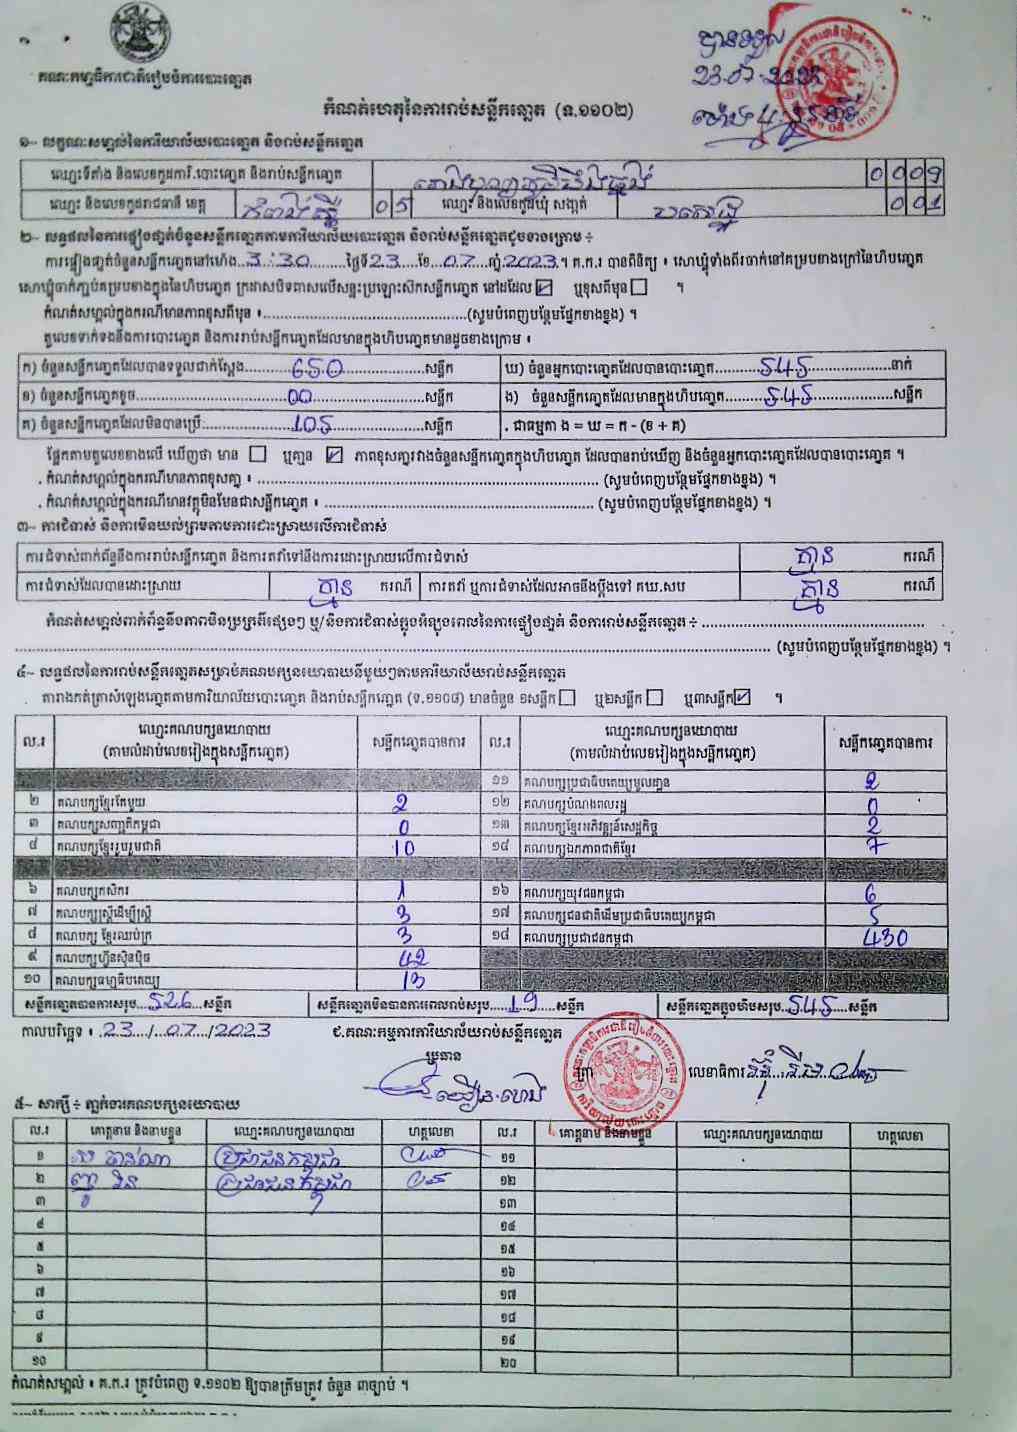 គណៈកម្មាធិការជាតិរៀបចំការបោះឆ្នោត
បានទទួល
23-07-2023
កំណត់ហេតុនៃការរាប់សន្លឹកឆ្នោត (ទ.១១០២)
១~ លក្ខណៈសម្គាល់នៃការិយាល័យបោះឆ្នោត និងរាប់សន្លឹកឆ្នោត
ឈ្មោះទីតាំង និងលេខកូដការិ.បោះឆ្នោត និងរាប់សន្លឹកឆ្នោត 0 0 0 9
ឈ្មោះ និងលេខកូដរាជធានី ខេត្ត កំពង់ស្ពឺ 0 5 ឈ្មោះ និងលេខកូដឃុំ សង្កាត់ 0 0 1
២~ លទ្ធផលនៃការផ្ទៀងផ្ទាត់ចំនួនសន្លឹកឆ្នោតតាមការិយាល័យបោះឆ្នោត និងរាប់សន្លឹកឆ្នោតដូចខាងក្រោម ÷
ការផ្ទៀងផ្ទាត់ចំនួនសន្លឹកឆ្នោតនៅម៉ោង 3:30 ថ្ងៃទី 23 ខែ 07 ឆ្នាំ 2023 ។ គ.ក.រ បានពិនិត្យ ៖ សោឃ្មុំទាំងពីរចាក់នៅគម្របខាងក្រៅនៃហិបឆ្នោត
សោឃ្មុំចាក់ភ្ជាប់គម្របខាងក្នុងនៃហិបឆ្នោត ក្រដាសបិទពាសលើសន្ទះប្រឡោះស៊កសន្លឹកឆ្នោត នៅដដែល ☑ ឬខុសពីមុន ☐ ។
កំណត់សម្គាល់ក្នុងករណីមានភាពខុសពីមុន ៖ (សូមបំពេញបន្ថែមផ្នែកខាងខ្នង) ។
តួលេខទាក់ទងនឹងការបោះឆ្នោត និងការរាប់សន្លឹកឆ្នោតដែលមានក្នុងហិបឆ្នោតមានដូចខាងក្រោម ៖
ក) ចំនួនសន្លឹកឆ្នោតដែលបានទទួលជាក់ស្តែង 650 សន្លឹក ឃ) ចំនួនអ្នកបោះឆ្នោតដែលបានបោះឆ្នោត 545 នាក់
ខ) ចំនួនសន្លឹកឆ្នោតខូច 00 សន្លឹក ង) ចំនួនសន្លឹកឆ្នោតដែលមានក្នុងហិបឆ្នោត 545 សន្លឹក
គ) ចំនួនសន្លឹកឆ្នោតដែលមិនបានប្រើ 105 សន្លឹក . ជាធម្មតា ង = ឃ = ក - (ខ + គ)
ផ្អែកតាមតួលេខខាងលើ ឃើញថា មាន ☐ ឬគ្មាន ☑ ភាពខុសគ្នារវាងចំនួនសន្លឹកឆ្នោតក្នុងហិបឆ្នោត ដែលបានរាប់ឃើញ និងចំនួនអ្នកបោះឆ្នោតដែលបានបោះឆ្នោត ។
. កំណត់សម្គាល់ក្នុងករណីមានភាពខុសគ្នា ៖ (សូមបំពេញបន្ថែមផ្នែកខាងខ្នង) ។
. កំណត់សម្គាល់ក្នុងករណីមានវត្ថុមិនមែនជាសន្លឹកឆ្នោត ៖ (សូមបំពេញបន្ថែមផ្នែកខាងខ្នង) ។
៣~ ការជំទាស់ និងការមិនយល់ព្រមតាមការដោះស្រាយលើការជំទាស់
ការជំទាស់ពាក់ព័ន្ធនឹងការរាប់សន្លឹកឆ្នោត និងការតវ៉ាទៅនឹងការដោះស្រាយលើការជំទាស់ គ្មាន ករណី
ការជំទាស់ដែលបានដោះស្រាយ គ្មាន ករណី ការតវ៉ា ឬការជំទាស់ដែលអាចនឹងប្តឹងទៅ គឃ.សប គ្មាន ករណី
កំណត់សម្គាល់ពាក់ព័ន្ធនឹងភាពមិនប្រក្រតីផ្សេងៗ ឬ/និងការជំទាស់ក្នុងអំឡុងពេលនៃការផ្ទៀងផ្ទាត់ និងការរាប់សន្លឹកឆ្នោត ÷
(សូមបំពេញបន្ថែមផ្នែកខាងខ្នង) ។
៤~ លទ្ធផលនៃការរាប់សន្លឹកឆ្នោតសម្រាប់គណបក្សនយោបាយនីមួយៗតាមការិយាល័យរាប់សន្លឹកឆ្នោត
តារាងកត់ត្រាសំឡេងឆ្នោតតាមការិយាល័យបោះឆ្នោត និងរាប់សន្លឹកឆ្នោត (ទ.១១០៨) មានចំនួន ១សន្លឹក ☐ ឬ២សន្លឹក ☐ ឬ៣សន្លឹក ☑ ។
ល.រ ឈ្មោះគណបក្សនយោបាយ (តាមលំដាប់លេខរៀងក្នុងសន្លឹកឆ្នោត) សន្លឹកឆ្នោតបានការ ល.រ ឈ្មោះគណបក្សនយោបាយ (តាមលំដាប់លេខរៀងក្នុងសន្លឹកឆ្នោត) សន្លឹកឆ្នោតបានការ
១១ គណបក្សប្រជាធិបតេយ្យមូលដ្ឋាន 2
២ គណបក្សខ្មែរតែមួយ 2 ១២ គណបក្សបំណងពលរដ្ឋ 0
៣ គណបក្សសញ្ជាតិកម្ពុជា 0 ១៣ គណបក្សខ្មែរអភិវឌ្ឍន៍សេដ្ឋកិច្ច 2
៤ គណបក្សខ្មែររួបរួមជាតិ 10 ១៤ គណបក្សឯកភាពជាតិខ្មែរ 7
៦ គណបក្សកសិករ 1 ១៦ គណបក្សយុវជនកម្ពុជា 6
៧ គណបក្សស្ត្រីដើម្បីស្ត្រី 3 ១៧ គណបក្សជនជាតិដើមប្រជាធិបតេយ្យកម្ពុជា 5
៨ គណបក្ស ខ្មែរឈប់ក្រ 3 ១៨ គណបក្សប្រជាជនកម្ពុជា 430
៩ គណបក្សហ្វ៊ុនស៊ិនប៉ិច 42
១០ គណបក្សធម្មាធិបតេយ្យ 13
សន្លឹកឆ្នោតបានការសរុប 526 សន្លឹក សន្លឹកឆ្នោតមិនបានការពេលរាប់សរុប 19 សន្លឹក សន្លឹកឆ្នោតក្នុងហិបសរុប 545 សន្លឹក
កាលបរិច្ឆេទ ៖ 23/07/2023 ជ.គណៈកម្មការការិយាល័យរាប់សន្លឹកឆ្នោត
ប្រធាន
លេខាធិការ
៥~ សាក្សី ÷ ភ្នាក់ងារគណបក្សនយោបាយ
ល.រ គោត្តនាម និងនាមខ្លួន ឈ្មោះគណបក្សនយោបាយ ហត្ថលេខា ល.រ គោត្តនាម និងនាមខ្លួន ឈ្មោះគណបក្សនយោបាយ ហត្ថលេខា
១ ប្រជាជនកម្ពុជា ១១
២ ប្រជាជនកម្ពុជា ១២
៣ ១៣
៤ ១៤
៥ ១៥
៦ ១៦
៧ ១៧
៨ ១៨
៩ ១៩
១០ ២០
កំណត់សម្គាល់ ៖ គ.ក.រ ត្រូវបំពេញ ទ.១១០២ ឱ្យបានត្រឹមត្រូវ ចំនួន ៣ច្បាប់ ។